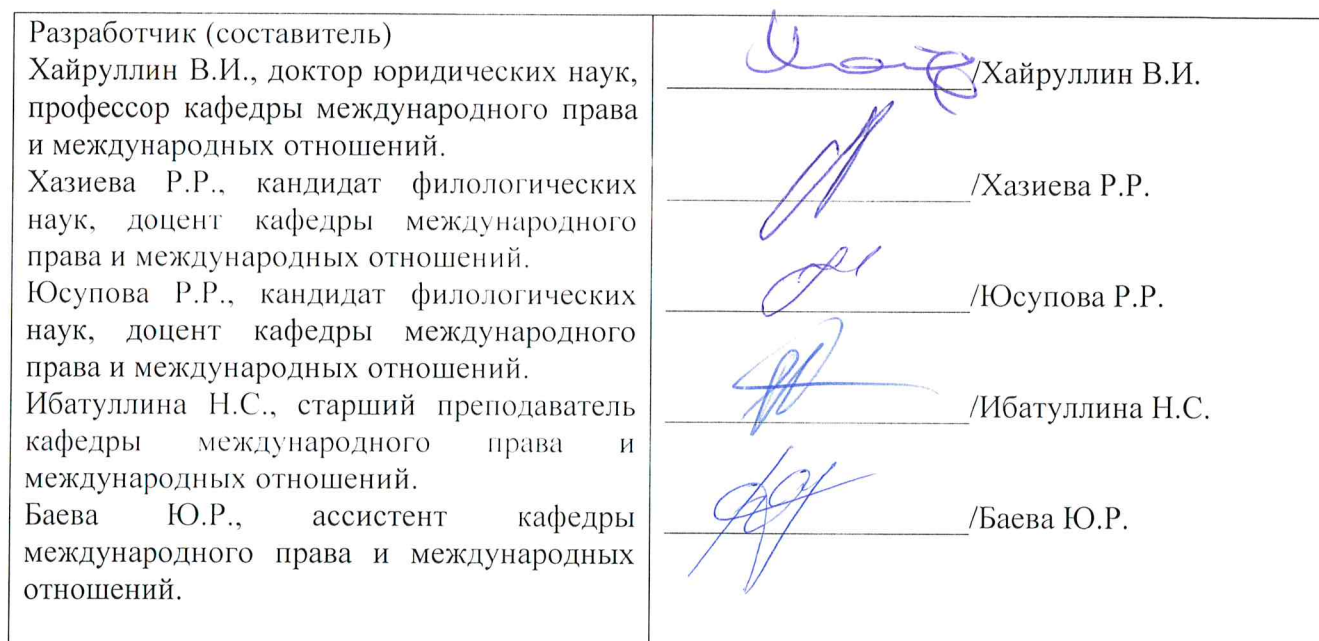 Разработчик (составитель)
Хайруллин В.И., доктор юридических наук,
профессор кафедры международного права
и международных отношений.
Хазиева Р.Р., кандидат филологических
наук, доцент кафедры международного
права и международных отношений.
Юсупова Р.Р., кандидат филологических
наук, доцент кафедры международного
права и международных отношений.
Ибатуллина Н.С., старший преподаватель
кафедры международного права и
международных отношений.
Баева Ю.Р., ассистент кафедры
международного права и международных
отношений.
/Хайруллин В.И.
/Хазиева Р.Р.
/Юсупова Р.Р.
/Ибатуллина Н.С.
/Баева Ю.Р.